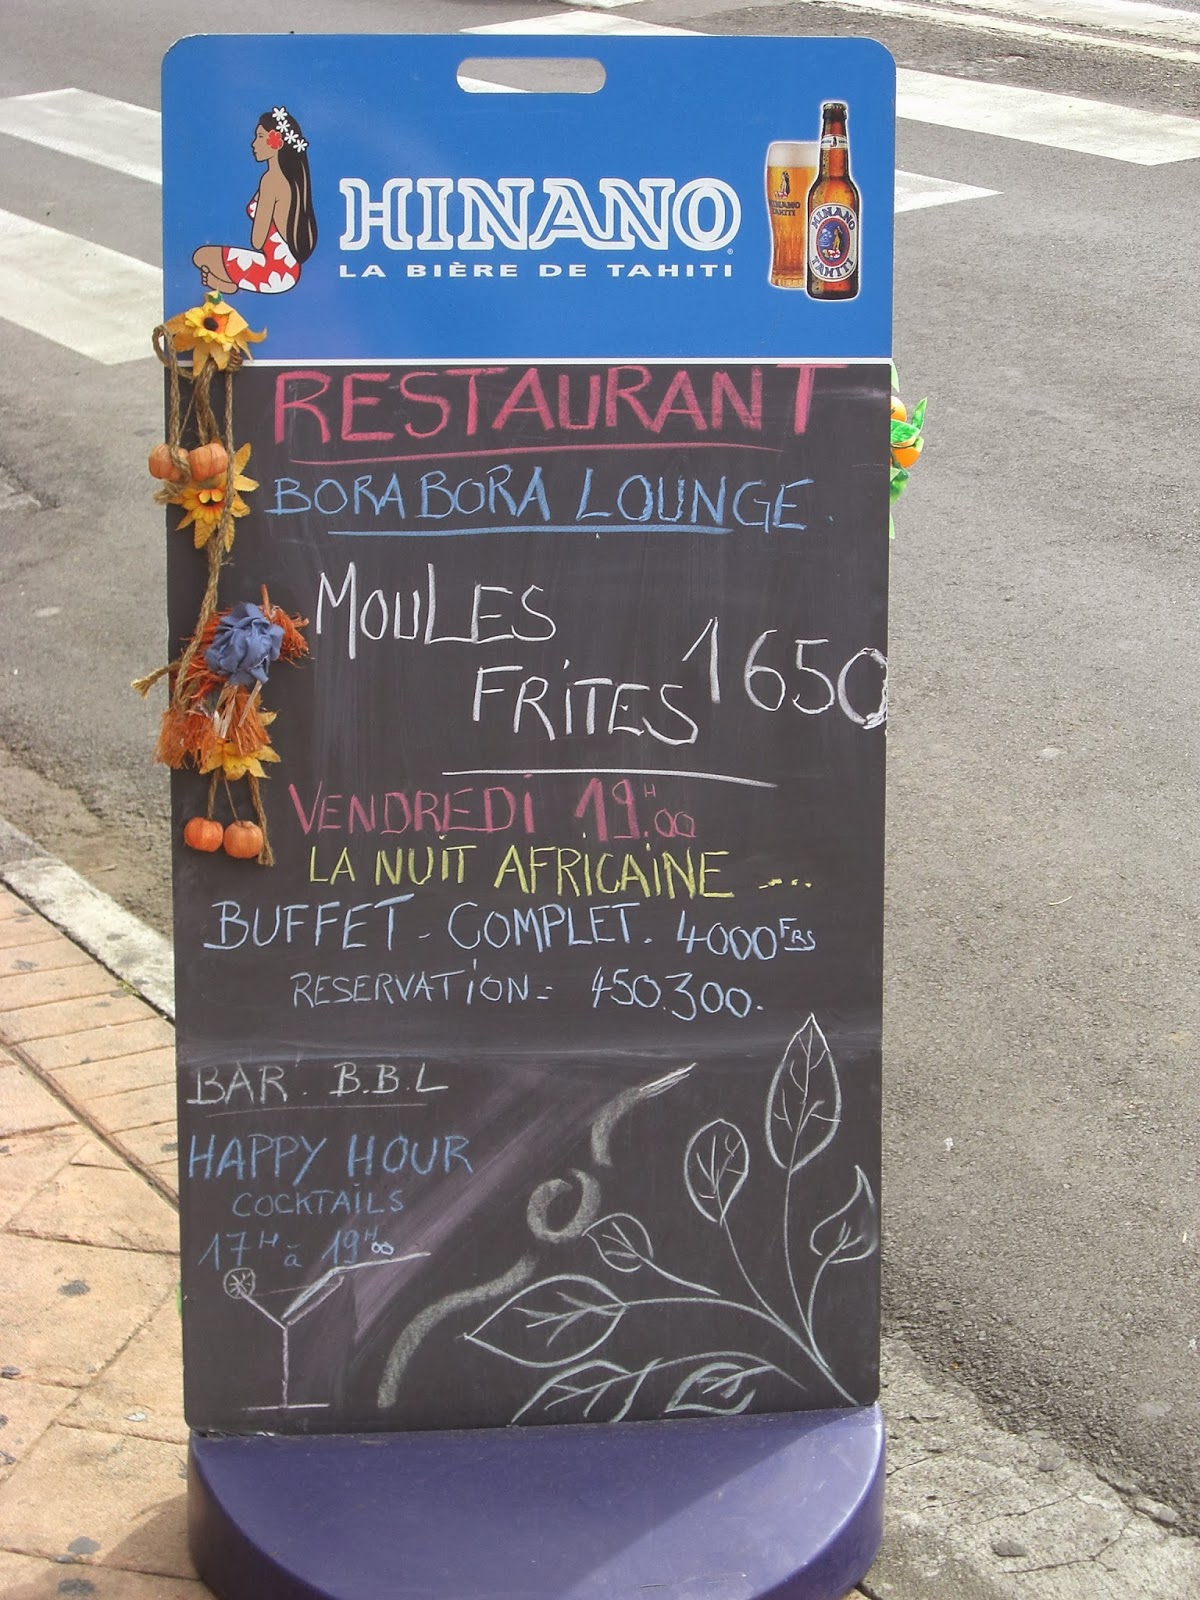 HINANO
LA BIÈRE DE TAHITI
HINANO
TAHITI
HINANO
TAHITI
RESTAURANT
BORA BORA LOUNGE
MOULES
FRITES 1650
VENDREDI 19H00
LA NUIT AFRICAINE ....
BUFFET - COMPLET. 4000FRS
RESERVATION = 450.300.
BAR. B.B.L
HAPPY HOUR
COCKTAILS
17H à 19H00